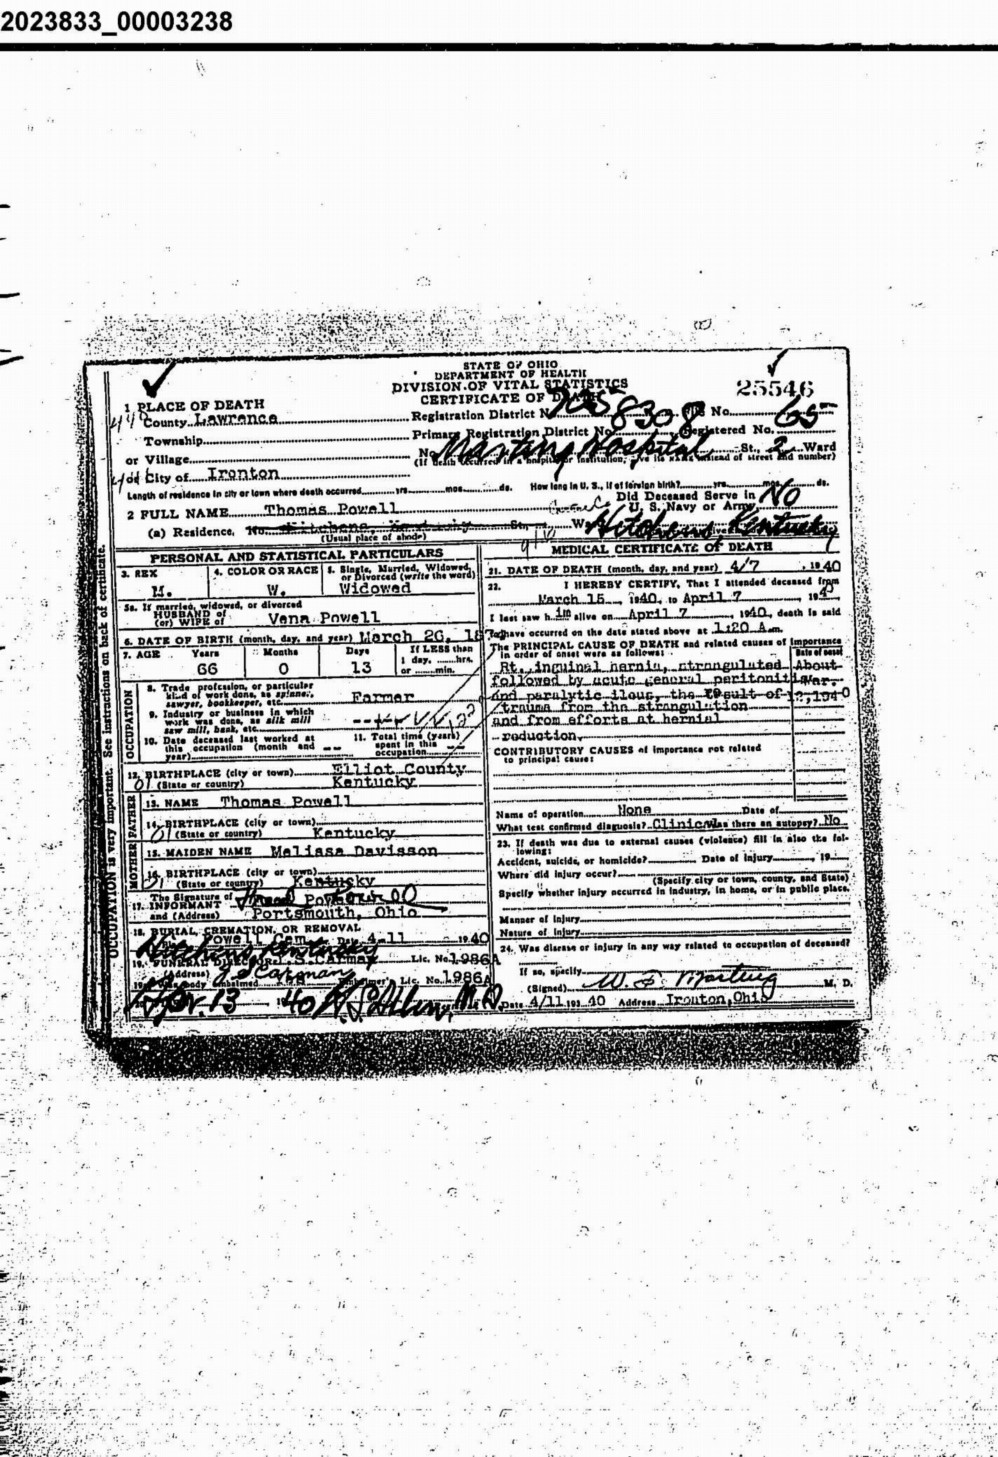 2023833_00003238
STATE OF OHIO
DEPARTMENT OF HEALTH
DIVISION OF VITAL STATISTICS
CERTIFICATE OF DEATH
25546
1 PLACE OF DEATH
County Lawrence
Registration District No. File No. 65
Township
Primary Registration District No. 8308 Registered No.
or Village
No. Marting Hospital St., 2 Ward
(If death occurred in a hospital or institution, give its name instead of street and number)
or City of Ironton
Length of residence in city or town where death occurred yrs. mos. ds. How long in U. S., if of foreign birth? yrs. mos. ds.
Did Deceased Serve in
U. S. Navy or Army No
2 FULL NAME Thomas Powell
(a) Residence. No. St., W Hitchens, Kentucky
(Usual place of abode)
PERSONAL AND STATISTICAL PARTICULARS
3. SEX 4. COLOR OR RACE 5. Single, Married, Widowed, or Divorced (write the word)
M. W. Widowed
5a. If married, widowed, or divorced
HUSBAND of
(or) WIFE of Vena Powell
6. DATE OF BIRTH (month, day, and year) March 26, 187
7. AGE Years Months Days If LESS than
1 day, hrs.
or min.
66 0 13
OCCUPATION
8. Trade, profession, or particular
kind of work done, as spinner,
sawyer, bookkeeper, etc. Farmer
9. Industry or business in which
work was done, as silk mill
saw mill, bank, etc.
10. Date deceased last worked at
this occupation (month and
year)
11. Total time (years)
spent in this
occupation
12. BIRTHPLACE (city or town) Elliot County
(State or country) Kentucky
FATHER
13. NAME Thomas Powell
14. BIRTHPLACE (city or town)
(State or country) Kentucky
MOTHER
15. MAIDEN NAME Melissa Davisson
16. BIRTHPLACE (city or town)
(State or country) Kentucky
The Signature of
17. INFORMANT
and (Address) Portsmouth, Ohio
18. BURIAL, CREMATION, OR REMOVAL
Powell Cem. Date 4-11 1940
Hitchens Kentucky
19. FUNERAL DIRECTOR Lic. No. 1986A
(Address)
Lic. No. 1986A
Apr. 13 1940
OCCUPATION is very important. See instructions on back of certificate.
MEDICAL CERTIFICATE OF DEATH
21. DATE OF DEATH (month, day, and year) 4/7, 1940
22. I HEREBY CERTIFY, That I attended deceased from
March 15, 1940, to April 7, 1940
I last saw him alive on April 7, 1940, death is said
to have occurred on the date stated above at 1:20 A.m.
The PRINCIPAL CAUSE OF DEATH and related causes of importance
in order of onset were as follows: Date of onset
Rt. inguinal hernia, strangulated About
followed by acute general peritonitis Mar.
and paralytic ileus, the result of 12, 1940
trauma from the strangulation
and from efforts at hernial
reduction.
CONTRIBUTORY CAUSES of importance not related
to principal cause:
Name of operation None Date of
What test confirmed diagnosis? Clinic Was there an autopsy? No
23. If death was due to external causes (violence) fill in also the following:
Accident, suicide, or homicide? Date of injury , 19
Where did injury occur?
(Specify city or town, county, and State)
Specify whether injury occurred in industry, in home, or in public place.
Manner of injury
Nature of injury
24. Was disease or injury in any way related to occupation of deceased?
If so, specify
(Signed) W. F. Marting M. D.
Date 4/11 1940 Address Ironton, Ohio